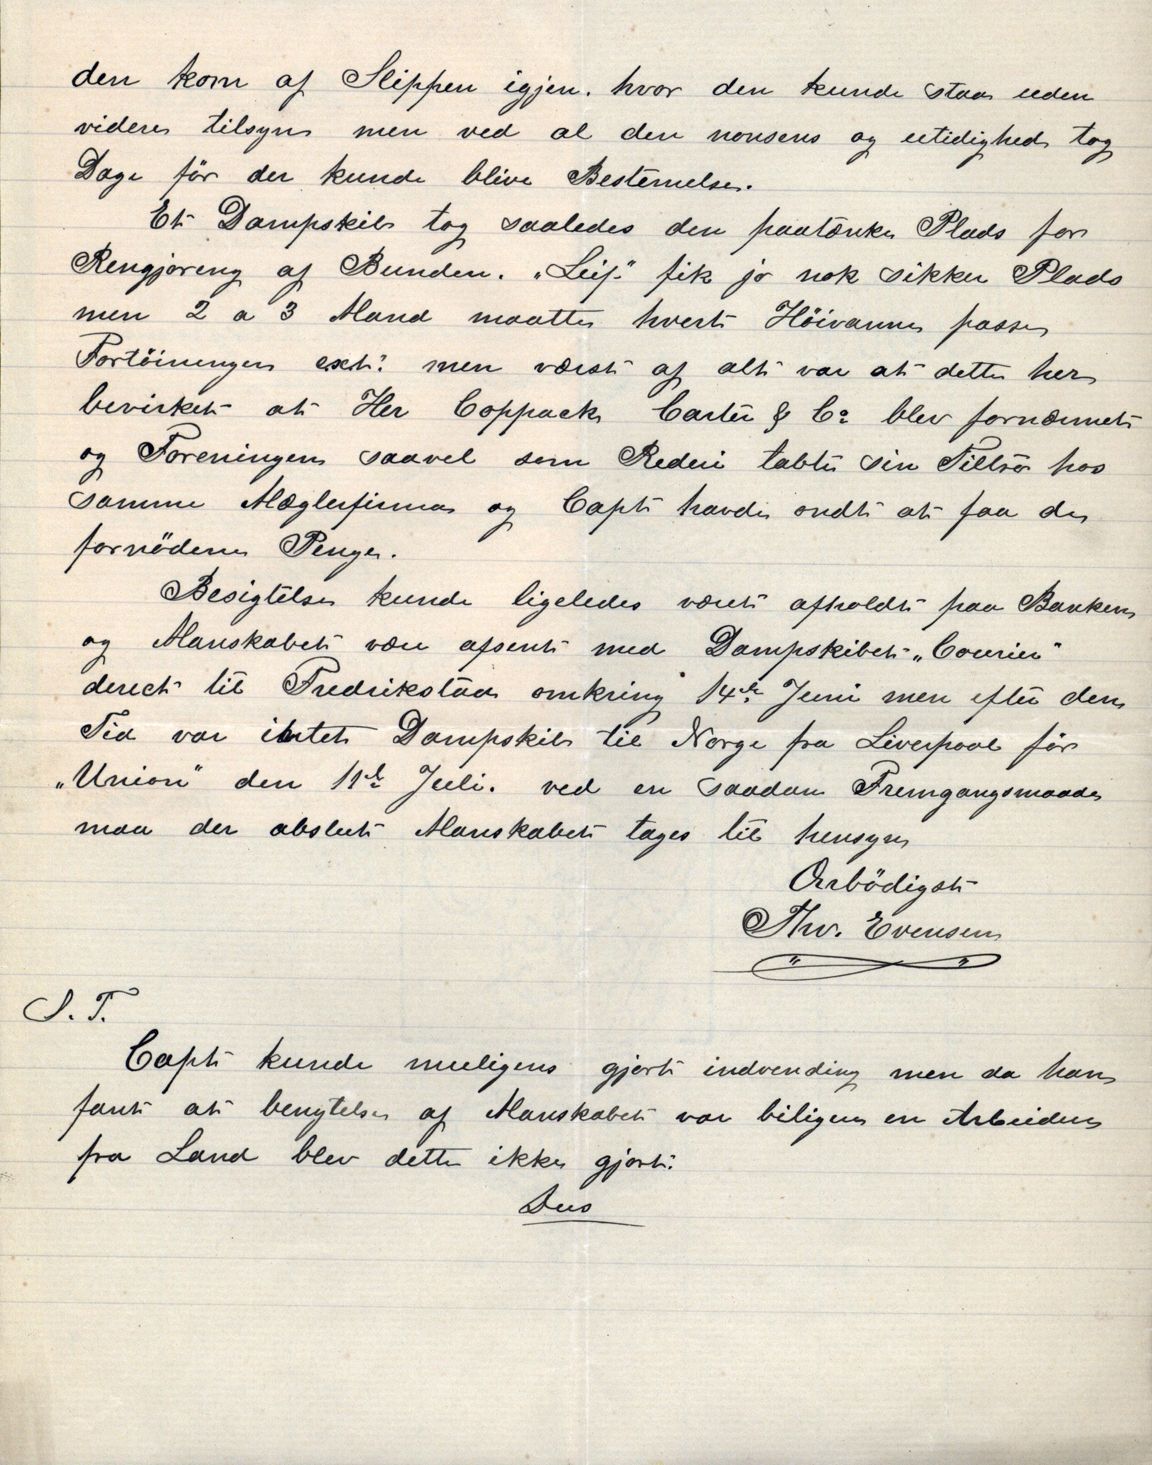 den kom af Slippen igjen. hvor den kunde staa uden
videre tilsyn men ved al den nonsens og utidighed tog
Dage før der kunde blive Bestemelse.
Et Dampskib tog saaledes den paatænkte Plads for
Rengjøreng af Bunden. „Leif" fik jo nok sikker Plads
men 2 a 3 Mand maatte hvert Höivanne passe
Fortöiningen ext: men værst af alt var at dette her
bevirket at Her Coppack Carter & Co blev fornærmet
og Foreningen saavel som Rederi tabte sin Tiltro hos
samme Mæglerfirma og Capt havde ondt at faa de
fornödene Penge.
Besigtelse kunde ligeledes været afholdt paa Banken
og Manskabet være afsent med Dampskibet „Courier"
derect til Fredrikstad omkring 14de Juni men efter den
Tid var intet Dampskib til Norge fra Liverpool för
„Union" den 11te Juli. ved en saadan Fremgangsmaade
maa der absolut Manskabet tages til hensyn
Ærbödigst
Thv. Evensen
S. T.
Capt kunde muligens gjort indvending men da han
fant at benytelse af Manskabet var biligere en Arbeidere
fra Land blev dette ikke gjort.
Dus